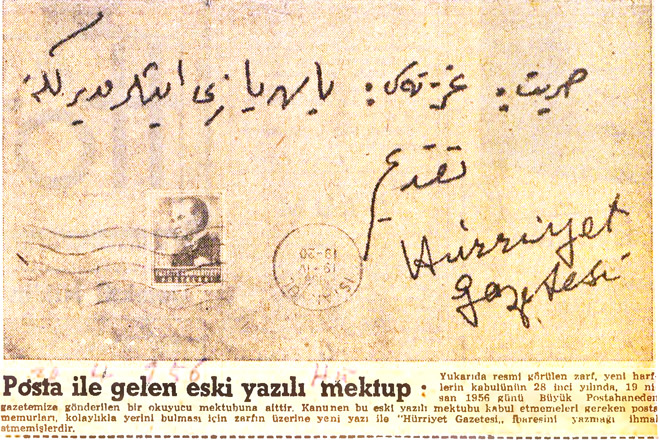 حریت: غزته سی: یازی ایشلر مدیرلکنه
تقدیم
Hürriyet
Gazetesi
Posta ile gelen eski yazılı mektup :
Yukarıda resmi görülen zarf, yeni harf-
lerin kabulünün 28 inci yılında, 19 ni-
san 1956 günü Büyük Postahaneden
gazetemize gönderilen bir okuyucu mektubuna aittir. Kanunen bu eski yazılı mektubu kabul etmemeleri gereken posta
memurları, kolaylıkla yerini bulması için zarfın üzerine yeni yazı ile "Hürriyet Gazetesi,, ibaresini yazmağı ihmal
etmemişlerdir.